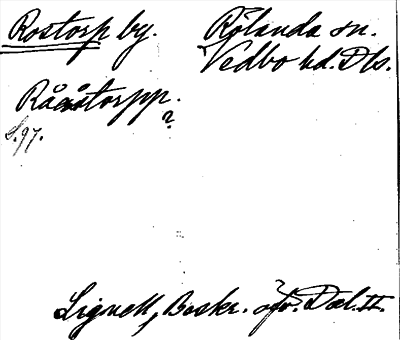 Rostorp by. Rölanda sn.
Vedbo hd. Dls.
Råastorpp.
?
S.97.
Lignell, Beskr. öfv. Dal. II.